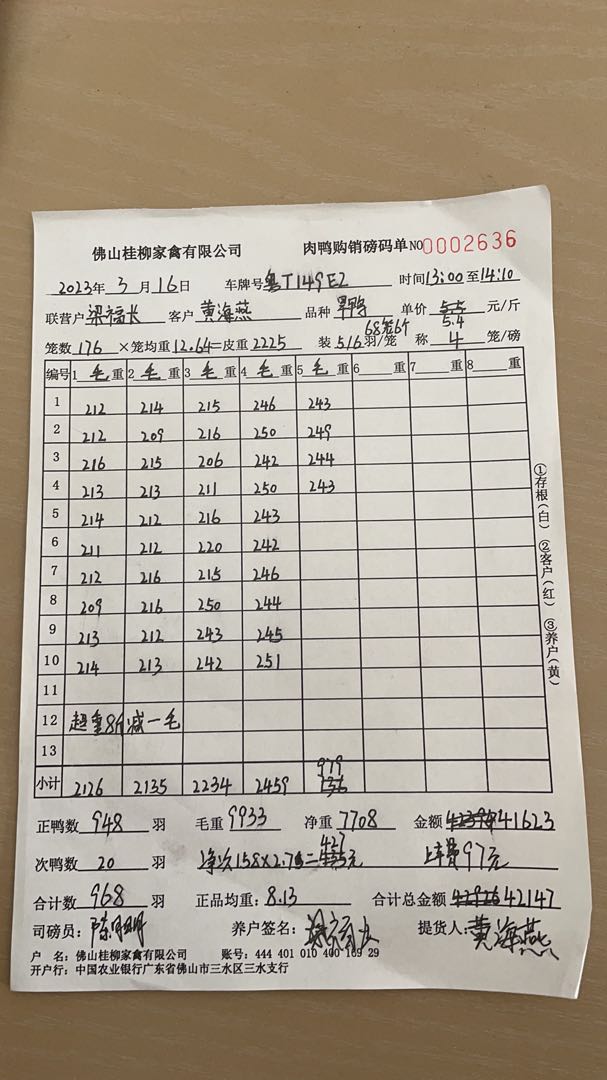 佛山桂柳家禽有限公司 肉鸭购销磅码单NO0002636
2023年3月16日 车牌号粤T149E2 时间13:00至14:10
联营户梁福长 客户黄海燕 品种 单价5.5 元/斤
68笼6个 5.4
笼数176×笼均重12.64=皮重2225 装516羽/笼 称4笼/磅
编号 1毛重 2毛重 3毛重 4毛重 5毛重 6重 7重 8重
1 212 214 215 246 243
2 212 209 216 250 249
3 216 215 206 242 244
4 213 213 211 250 243
5 214 212 216 243
6 211 212 220 242
7 212 216 215 246
8 209 216 250 244
9 213 212 243 245
10 214 213 242 251
11
12 超重8斤减一毛
13
979
小计 2126 2135 2234 2459 136
正鸭数948羽 毛重9933 净重7708 金额41623
427
次鸭数20羽 净次158×2.7=元 上车费97元
合计数968羽 正品均重:8.13 合计总金额42147
司磅员: 养户签名: 提货人:黄海燕
户 名:佛山桂柳家禽有限公司 账号:444 401 010 400 169 29
开户行:中国农业银行广东省佛山市三水区三水支行
①存根(白) ②客户(红) ③养户(黄)